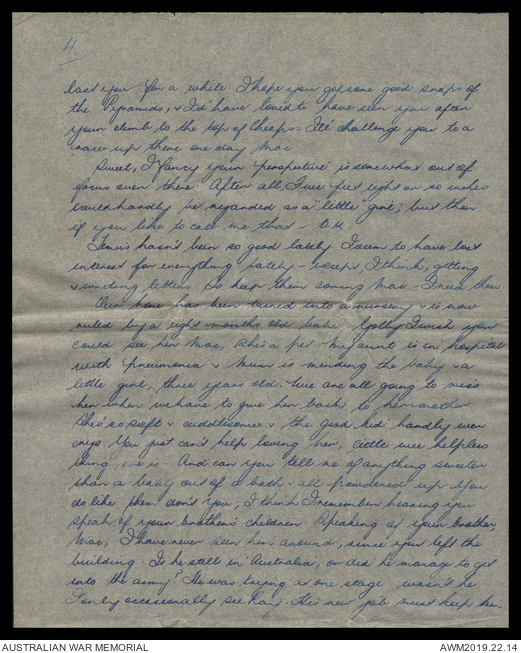 4
last you for a while. I hope you got some good snaps of
the Pyramids, & I'd have loved to have seen you after
your climb to the top of Cheops. I'll challenge you to a
race up there one day Mac.
Sweet, I fancy your "perspective" is somewhat out of
focus over there. After all, five feet eight or so inches
could hardly be regarded as a "little" girl; but then
if you like to call me that – O.K.
Tennis hasn't been so good lately. I seem to have lost
interest for everything lately – except, I think, getting
& writing letters. So keep them coming Mac – I need them
Our home has been turned into a nursery & is now
ruled by a eight months old babe. Golly I wish you
could see her Mac, she's a pet. My aunt is in hospital
with pneumonia & Mum is minding the baby & a
little girl, three years old. We are all going to miss
her when we have to give her back to her mother
She's so soft & cuddlesome & the good kid hardly ever
crys. You just can't help loving her, little wee helpless
thing she is. And can you tell me of anything sweeter
than a baby out of a bath – all powdered up. You
do like them don't you; I think I remember hearing you
speak of your brother's children. Speaking of your brother,
Mac, I have never seen him around, since you left the
building. Is he still in Australia, or did he manage to get
into the army? He was trying at one stage, wasn't he
I only occasionally see Ray. His new job must keep him
AUSTRALIAN WAR MEMORIAL
AWM2019.22.14